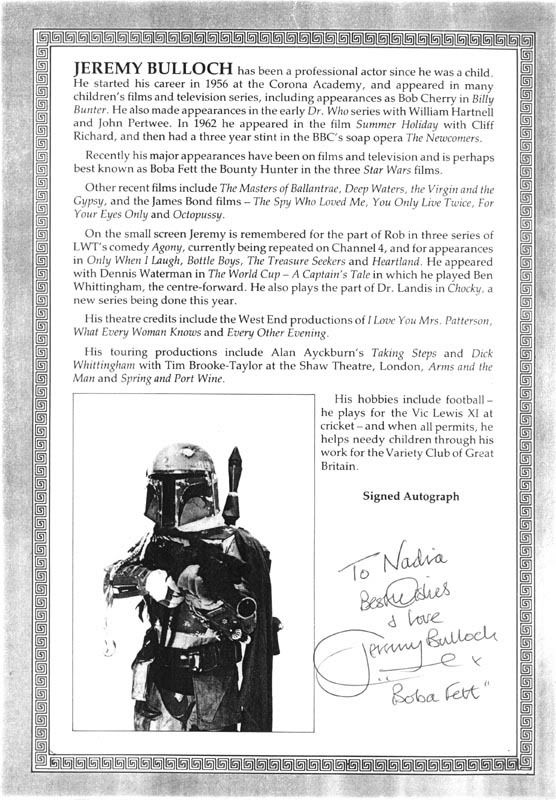 JEREMY BULLOCH has been a professional actor since he was a child.
He started his career in 1956 at the Corona Academy, and appeared in many
children's films and television series, including appearances as Bob Cherry in Billy
Bunter. He also made appearances in the early Dr. Who series with William Hartnell
and John Pertwee. In 1962 he appeared in the film Summer Holiday with Cliff
Richard, and then had a three year stint in the BBC's soap opera The Newcomers.
Recently his major appearances have been on films and television and is perhaps
best known as Boba Fett the Bounty Hunter in the three Star Wars films.
Other recent films include The Masters of Ballantrae, Deep Waters, the Virgin and the
Gypsy, and the James Bond films – The Spy Who Loved Me, You Only Live Twice, For
Your Eyes Only and Octopussy.
On the small screen Jeremy is remembered for the part of Rob in three series of
LWT's comedy Agony, currently being repeated on Channel 4, and for appearances
in Only When I Laugh, Bottle Boys, The Treasure Seekers and Heartland. He appeared
with Dennis Waterman in The World Cup – A Captain's Tale in which he played Ben
Whittingham, the centre-forward. He also plays the part of Dr. Landis in Chocky, a
new series being done this year.
His theatre credits include the West End productions of I Love You Mrs. Patterson,
What Every Woman Knows and Every Other Evening.
His touring productions include Alan Ayckburn's Taking Steps and Dick
Whittingham with Tim Brooke-Taylor at the Shaw Theatre, London, Arms and the
Man and Spring and Port Wine.
His hobbies include football –
he plays for the Vic Lewis XI at
cricket – and when all permits, he
helps needy children through his
work for the Variety Club of Great
Britain.
Signed Autograph
To Nadia
Best Wishes
& Love
Jeremy Bulloch
x
Boba Fett"